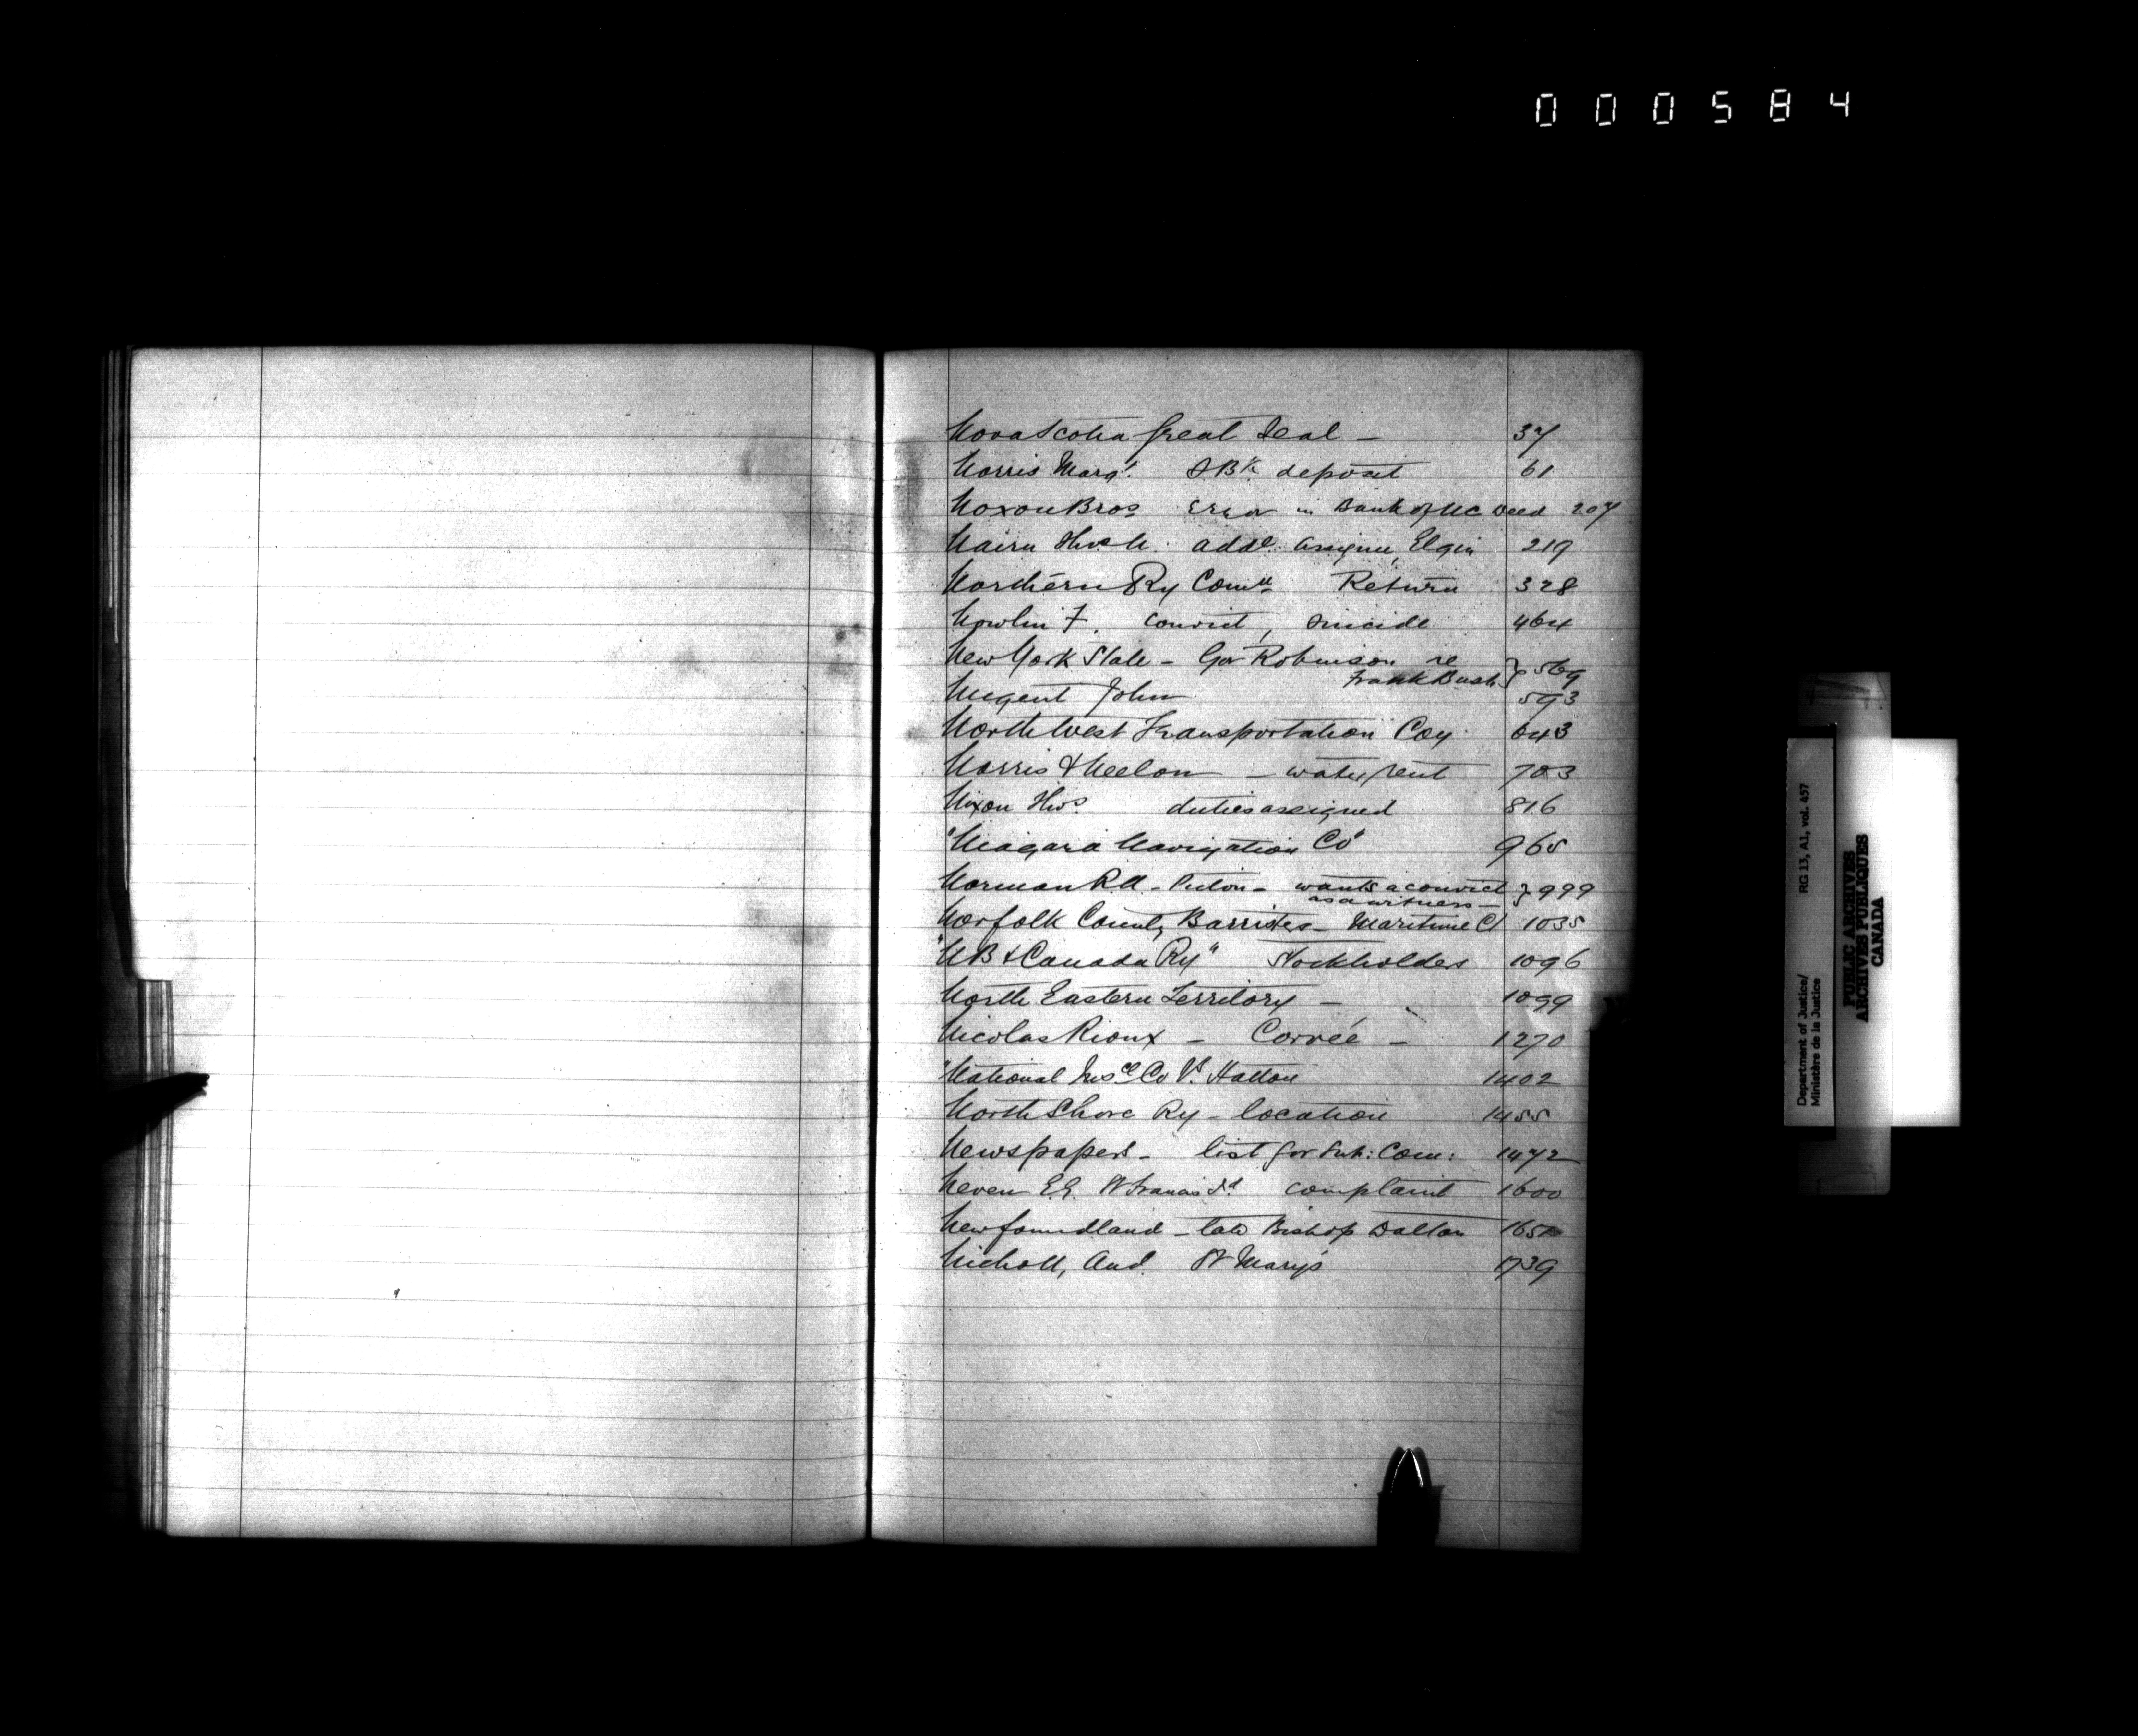 000584
Nova Scotia Great Seal - 37
Norris Margt. S. Bk deposit 61
Noxon Bros Error in Bank of UC Deed 207
Nairn Hugh. addl. assignee, Elgin 219
Northern Ry Comn Return 328
Nowlin F, convict, suicide 464
New York State - Gov Robinson re } 569
Frank Bush
Nugent John 593
North West Transportation Coy. 643
Norris & Neelon - water rent 703
Nixon Thos. duties assigned 816
"Niagara Navigation Co" 965
Norman - Picton - wants a convict } 999
as a witness -
Norfolk County Barristers - Maritime Ct 1035
"NB & Canada Ry" Stockholders 1096
North Eastern Territory - 1099
Nicolas Rioux - Corvée - 1270
"National Insce Co Vs. Hatton 1402
North Shore Ry - location 1455
Newspapers - list for Sub: Com: 1472
Neven E.E. St Francis Dt complaint 1600
Newfoundland - late Bishop Dalton
Nicholl, And St Mary's 1739
Department of Justice/ RG 13, A1, vol. 457
Ministère de la Justice
PUBLIC ARCHIVES
ARCHIVES PUBLIQUES
CANADA